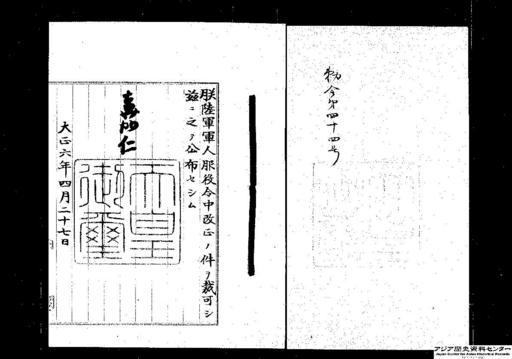 勅令第四十四号
朕陸軍軍人服役令中改正ノ件ヲ裁可シ
茲ニ之ヲ公布セシム
嘉仁
天皇御璽
大正六年四月二十七日
アジア歴史資料センター
Japan Center for Asian Historical Records